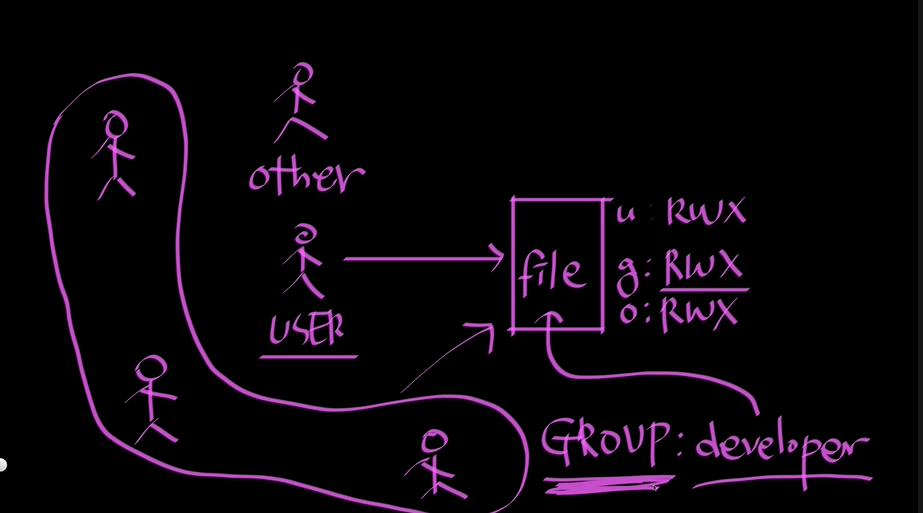 other
USER
file
u: RWX
g: RWX
o: RWX
GROUP: developer